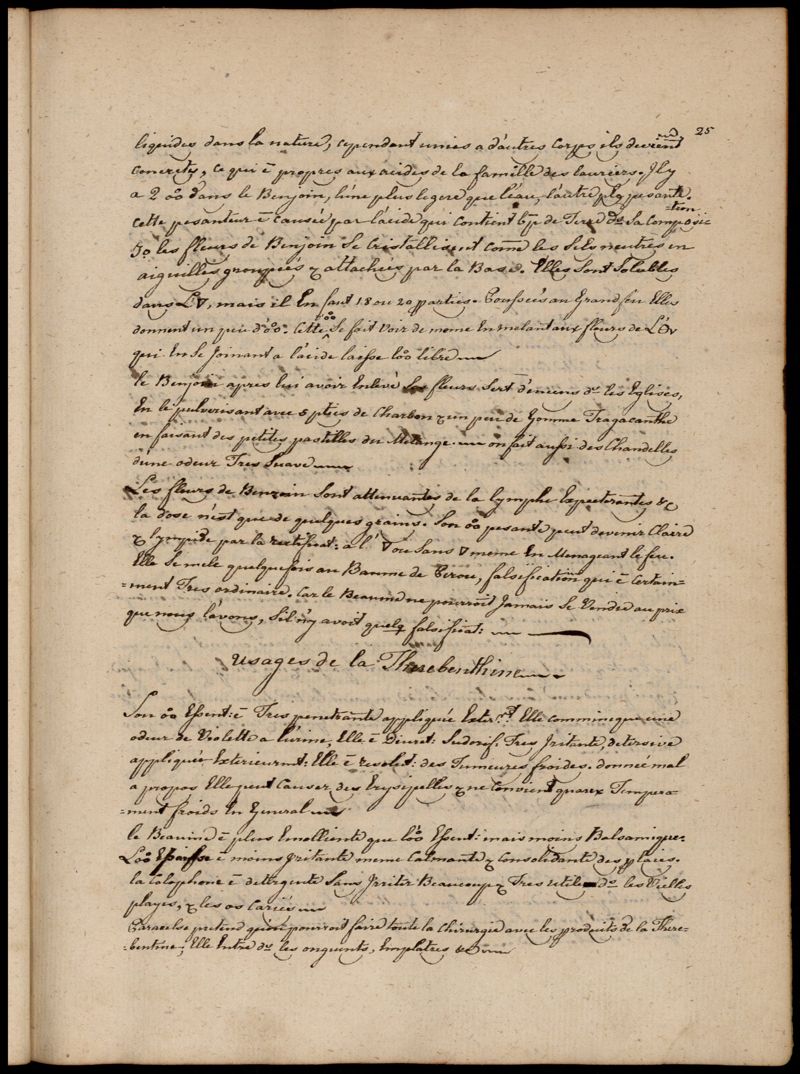 25
liquides dans la nature, cependant unies a d'autres corps ils devienent
concrets, ce qui ē propres aux acides de la famille des lauriers. Il y
a 2 ōō dans le Benjoin, l'une plus legere que l'eau, l'autre plus pesante.
cette pesanteur ē causée par l'acide qui contient bp de Terre ds Sa Composition
5o les fleurs de Benjoin Se Cristallisent come les Sels neutres en
aiguilles groupées & attachées par la Base. Elles Sont Solubles
dans L'∇, mais il En faut 18 ou 20 parties. Poussées au Grand feu Elles
donnent un peu d'ōō. Cette ōō Se fait Voir de meme En melant aux fleurs de L'
qui En Se joinant a l'acide laisse l'ōō libre
le Benjoin apres lui avoir Enlevé les fleurs Sert d'encens ds les Eglises,
En le pulverisant avec 5 pties de Charbon & un peu de Gomme Tragacanthe
en faisant des petites pastilles du Melange. on fait aussi des Chandelles
dune odeur Tres Suave
Les fleurs de Benzoin Sont attenuantes de la lymphe Expectorantes &c
la dose n'est que de quelques grains. Son ōō pesante peut devenir Claire
& lympide par la rectificat: a l'∇ ou Sans ∇ meme En Menageant le feu.
Elle Se mele quelquefois au Baume de Perou, falsification qui ē Certain-
-ment Tres ordinaire. Car le Beaume ne pourroit Jamais Se Vendre au prix
que nous l'avons, S'il n'y avoit quelq falsificat:
Usages de la Therebenthine
Son ōō Essent: ē Tres penetrante appliquée Exter.mt Elle comminique une
odeur de Violette a l'urine, Elle ē Diuret: Sudorif: Tres Jritante, detersive
appliquée Exterieurmt: Elle ē resolut: des Tumeures froides. donnée mal
a propos Elle peut Causer des Erysipelles & ne Convient qu'aux Tempera-
-ment froids En General
le Beaume ē plus Emolliente que l'ōō Essent: mais moins Balsamique.
L'ōō Epaisse ē moins jritante meme Calmante & Consolidante des playes.
la Colophone ē detergente Sans Jrriter Beaucoup & Tres utile ds les Vielles
playes, & les os Cariés
Paracelse pretend qu'on pourroit faire toute la Chirurgie avec les produits de la There-
-bentine; Elle Entre ds les onguents, Emplatres &c